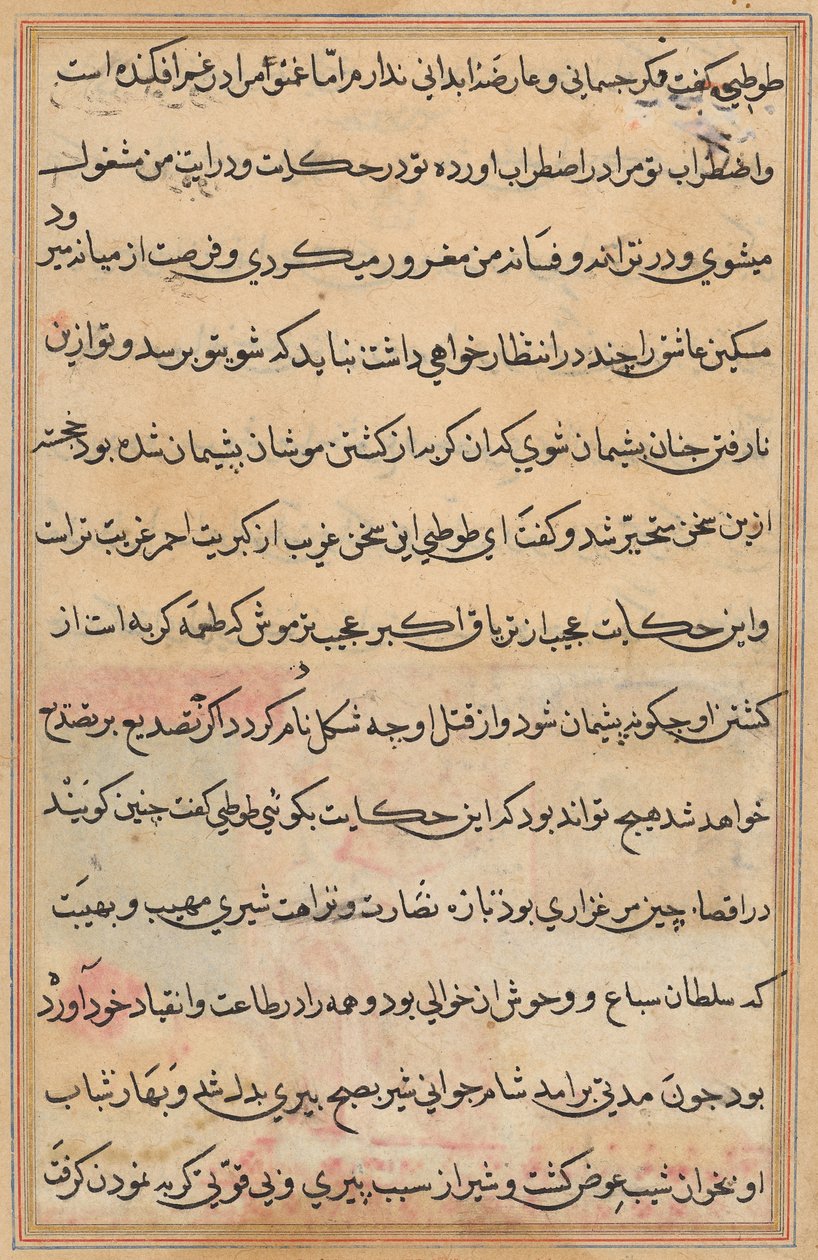 طوطي كفت فكر جسماني و عارضهٔ ابداني ندارم امّا غم تو مرا در غم افكنده است
و اضطراب تو مرا در اضطراب اورده تو در حكايت و درايت من مشغول
ميشوي و در ترانه و فسانه من مغرور ميكردي و فرصت از ميانه ميرود
مسكين عاشق را چند در انتظار خواهي داشت نبايد كه شويتو برسد و تو ازين
نارفتن جنان پشيمان شوي كه ان كربه از كشتن موشان پشيمان شده بود خجسته
ازين سخن متحيّر شد و كفت اي طوطي اين سخن غريب از كبريت احمر غريب تر است
و اين حكايت عجيب از ترياق اكبر عجيب تر موش كه طعمه كربه است از
كشتن او جكونه پشيمان شود و از قتل او چه شكل نادم كردد اكر تصديع بر تصديع
خواهد شد هيچ تواند بود كه اين حكايت بكوئي طوطي كفت چنين كويند
در اقصاء چين مرغزاري بود تازه نضارت و نزاهت شيري مهيب و بهيبت
كه سلطان سباع و وحوش ان حوالي بود و همه را در طاعت و انقياد خود آورده
بود جون مدتي برامد شام جواني شير بصبح پيري بدل شد و بهار شباب
او بخزان شيب عوض كشت و شير از سبب پيري و بي قوّتي كربه نمودن كرفت